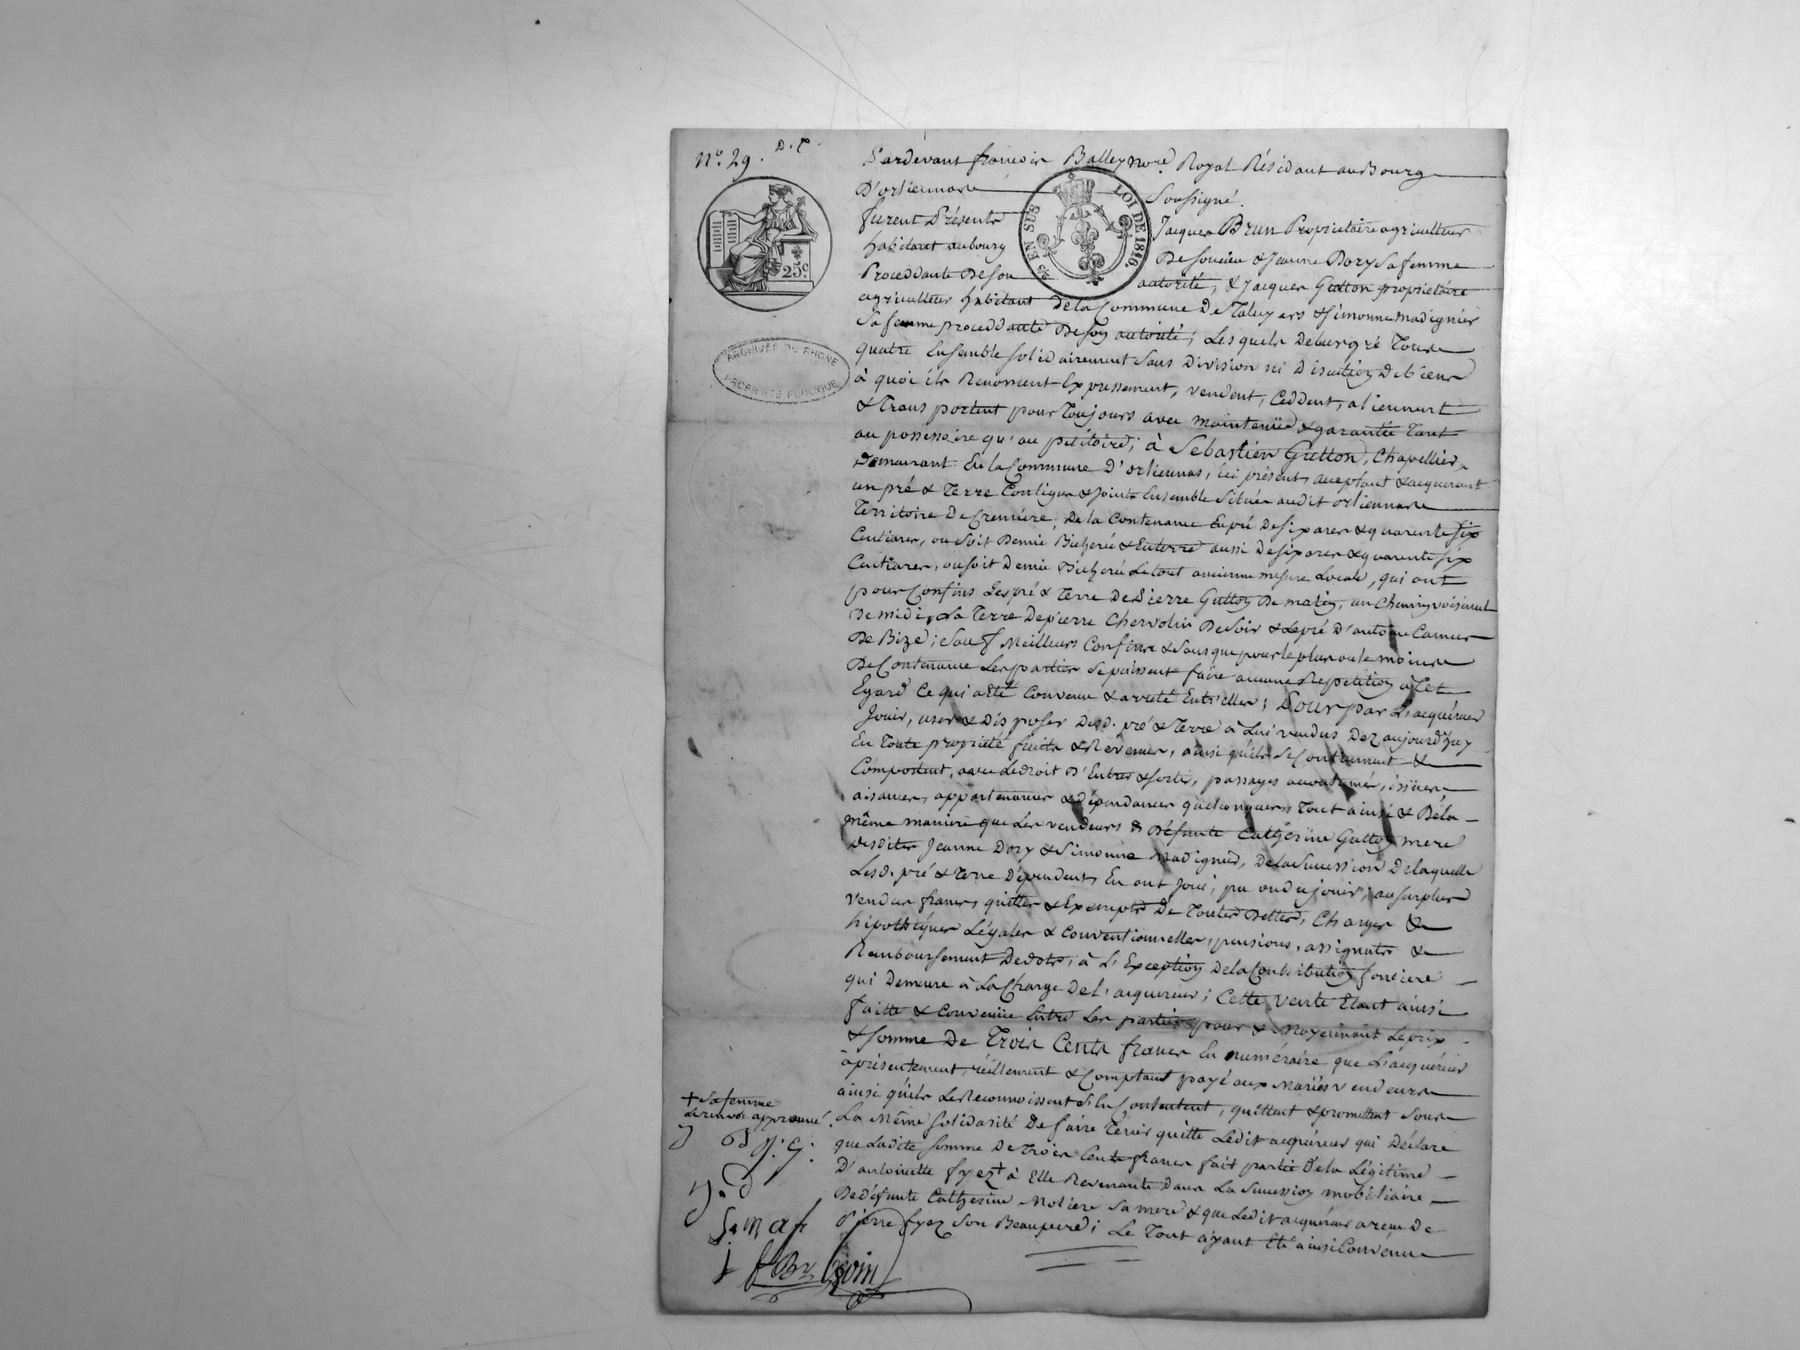 N.° 29. D. T.
Pardevant françois Balley no.re Royal Résidant au Bourg
D'orliennas soussigné.
25 EN SUS LOI DE 1816.
25 c
furent Présents Jacques Brun Propriétaire agriculteur
habitant au bourg De soucieu & Jeanne Dory sa femme
Proceddante De son autorité, & Jacques Gutton propriétaire
agriculteur habitant de la Commune De Taluyers & Simonne madignier
ARCHIVES DU RHONE
PROPRIÉTÉ PUBLIQUE
sa femme proceddante De son autorité; Lesquels De leur gré Tous
quatre Ensemble solidairement sans Division ni Discution De biens
à quoi ils Renoncent Expressement, vendent, Ceddent, aliennent
& Transportent pour Toujours avec maintenüe & garantie Tant
au possessoire qu'au petitoire; à Sebastien Gutton, Chapellier
Demeurant En la Commune D'orliennas, ici présent, aceptant & acquerant
un pré & Terre Contigus & Joints Ensemble Situés audit orliennas
Territoire De Cremiere, De la Contenance En pré De six ares & quarente six
Centiares, ou soit Demie Bicherée & En terre aussi De six ares & quarente six
Centiares, ou soit Demie Bicherée Le tout ancienne mesure Locale, qui ont
pour Confins Les pré & Terre De Pierre Gutton De matin, un Chemin voisinal
De midi, La Terre De pierre Chervolin De soir & Le pré D'antoine Camus
De Bize; sauf Meilleurs Confins & sans que pour le plus ou le moins
De Contenance Les parties se puissent faire aucune Repetition à Cet
Egard Ce qui a Eté Convenu & arreté Entr'elles; Pour par L'acquéreur
Jouir, user & Disposer Desd. pré & Terre à Lui vendus Dez aujourd'huy
En Toute propriété fruits & Revenus, ainsi qu'ils se Contiennent &
Comportent, avec Le droit D'Entrée & sortie, passages accoutumés, issües,
aisances, appartenances & dépendances quelconques, Tout ainsi & De la
même maniere que Les vendeurs & Défunte Catherine Gutton mere
Desdites Jeanne Dory & Simonne Madignier, De la Succession De laquelle
Lesd. pré & Terre Dépendent, En ont Joui, pu ou du jouir; au surplus
vendus francs, quittes & Exempts De Toutes Dettes, Charges &
hipothéques Légales & Conventionnelles, pensions, assignats &
Remboursement De dots, à L'Exception De la Contribution fonciere
qui Demeure à La Charge De L'acquereur; Cette vente Etant ainsi
faitte & Convenüe Entre Les parties pour & Moyennant Le prix
& somme De Trois Cents francs En numéraire que L'acquéreur
à présentement, réellement & Comptant payé aux Mariés vendeurs
ainsi qu'ils Le Reconnoissent s'En Contentent, quittent & promettent sous
La Même solidarité De faire Tenir quitte Ledit acquéreur qui Déclare
que Ladite somme De Trois Cents francs fait partie De la Légitime
D'antoinette fyez + à Elle Revenante Dans La Succession mobiliaire
De défunte Catherine Moliere sa mere & que Ledit acquéreur a reçu De
Pierre fyez son Beaupere; Le Tout ayant Eté ainsi Convenu
+ sa femme
Le renvoi approuvé.
B J. G.